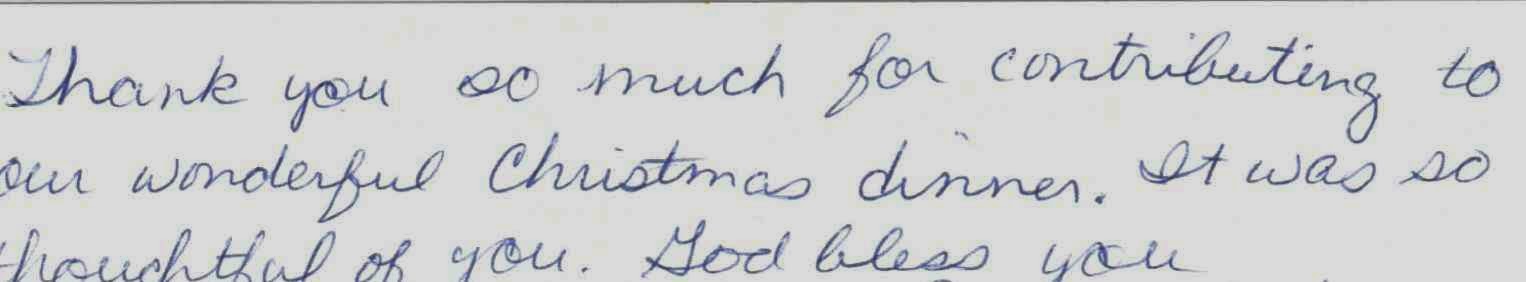 Thank you so much for contributing to
our wonderful Christmas dinner. It was so
thoughtful of you. God bless you